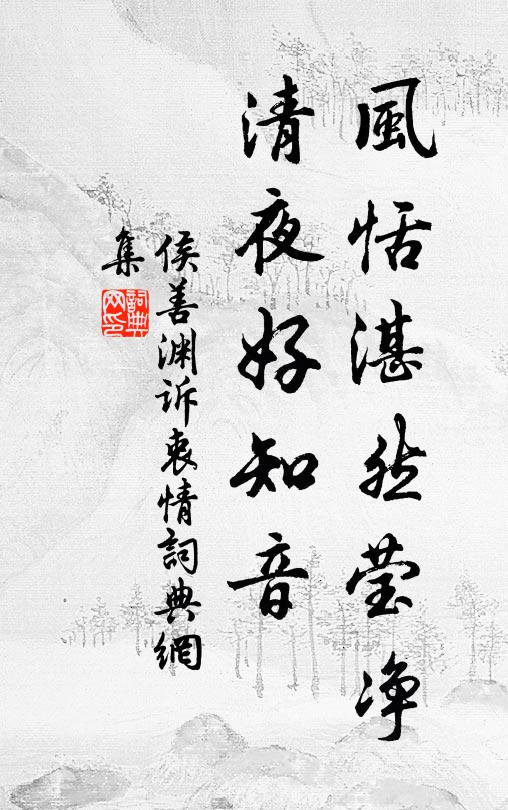 風恬湛然莹净
清夜好知音
侯善渊诉衷情詞典網
集
詞典网印